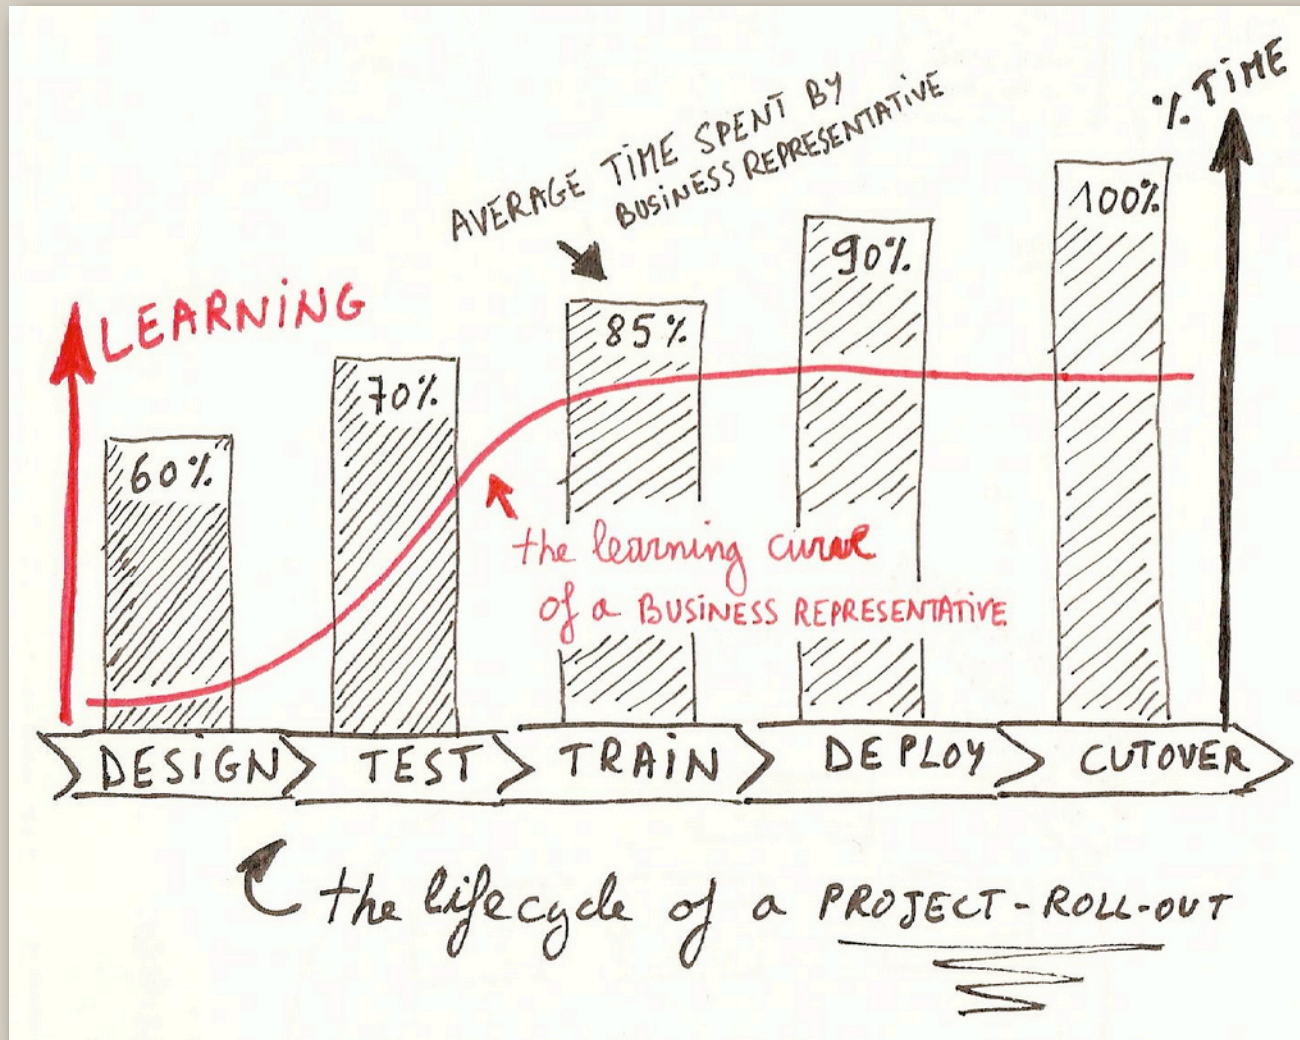 % TIME
AVERAGE TIME SPENT BY
BUSINESS REPRESENTATIVE
100%
90%
LEARNING
85%
70%
60%
the learning curve
of a BUSINESS REPRESENTATIVE
DESIGN TEST TRAIN DEPLOY CUTOVER
the lifecycle of a PROJECT-ROLL-OUT